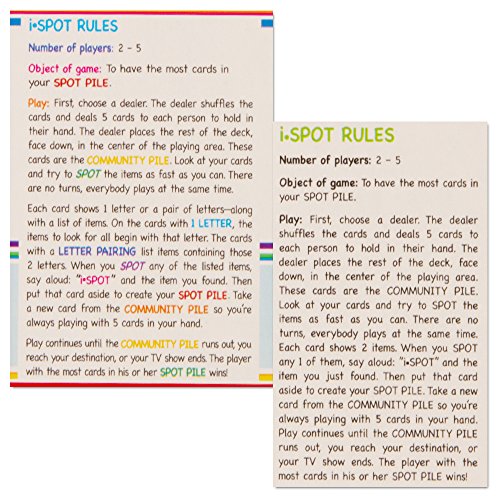 i•SPOT RULES
Number of players: 2 - 5
Object of game: To have the most cards in
your SPOT PILE.
Play: First, choose a dealer. The dealer shuffles the
cards and deals 5 cards to each person to hold in
their hand. The dealer places the rest of the deck,
face down, in the center of the playing area. These
cards are the COMMUNITY PILE. Look at your cards
and try to SPOT the items as fast as you can. There
are no turns, everybody plays at the same time.
Each card shows 1 letter or a pair of letters—along
with a list of items. On the cards with 1 LETTER, the
items to look for all begin with that letter. The cards
with a LETTER PAIRING list items containing those
2 letters. When you SPOT any of the listed items,
say aloud: "i•SPOT" and the item you found. Then
put that card aside to create your SPOT PILE. Take
a new card from the COMMUNITY PILE so you're
always playing with 5 cards in your hand.
Play continues until the COMMUNITY PILE runs out, you
reach your destination, or your TV show ends. The player
with the most cards in his or her SPOT PILE wins!
i•SPOT RULES
Number of players: 2 - 5
Object of game: To have the most cards in
your SPOT PILE.
Play: First, choose a dealer. The dealer
shuffles the cards and deals 5 cards to
each person to hold in their hand. The
dealer places the rest of the deck, face
down, in the center of the playing area.
These cards are the COMMUNITY PILE.
Look at your cards and try to SPOT the
items as fast as you can. There are no
turns, everybody plays at the same time.
Each card shows 2 items. When you SPOT
any 1 of them, say aloud: "i•SPOT" and the
item you just found. Then put that card
aside to create your SPOT PILE. Take a new
card from the COMMUNITY PILE so you're
always playing with 5 cards in your hand.
Play continues until the COMMUNITY PILE
runs out, you reach your destination, or
your TV show ends. The player with the most
cards in his or her SPOT PILE wins!